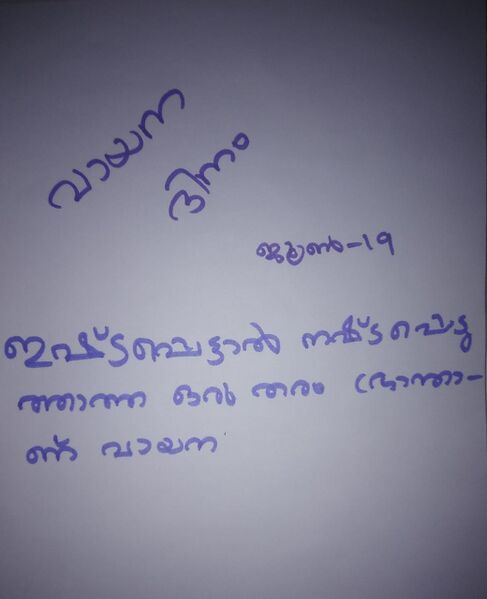 വായന
ദിനം
ജൂൺ-19
ഇഷ്ടപ്പെട്ടാൽ നഷ്ടപ്പെടു
ത്താത്ത ഒരു തരം ഭ്രാന്താ-
ണ് വായന